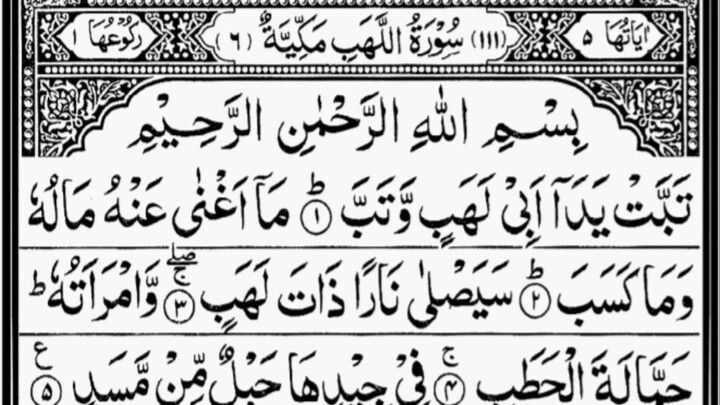 اٰيَاتُهَا ٥ (١١١) سُوْرَةُ اللَّهَبِ مَكِّيَّةٌ (٦) رُكُوْعُهَا ١
بِسْمِ اللهِ الرَّحْمٰنِ الرَّحِيْمِ
تَبَّتْ يَدَآ اَبِيْ لَهَبٍ وَّتَبَّ ؕ ١ مَآ اَغْنٰى عَنْهُ مَالُهٗ
وَمَا كَسَبَ ؕ ٢ سَيَصْلٰى نَارًا ذَاتَ لَهَبٍ ۚ ۖ ٣ وَّامْرَاَتُهٗ ؕ
حَمَّالَةَ الْحَطَبِ ۚ ٤ فِيْ جِيْدِهَا حَبْلٌ مِّنْ مَّسَدٍ ع ٥